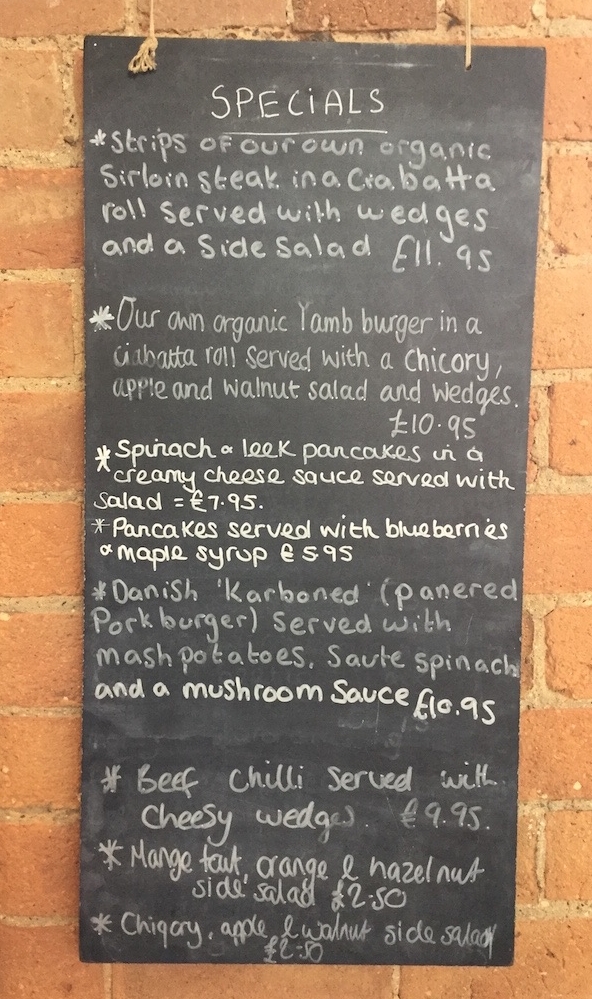 SPECIALS
*Strips of our own organic
Sirloin steak in a Ciabatta
roll Served with wedges
and a Side Salad £11.95
*Our own organic lamb burger in a
ciabatta roll served with a chicory,
apple and walnut salad and wedges.
£10.95
*Spinach & leek pancakes in a
creamy cheese sauce served with
Salad = £7.95.
*Pancakes served with blueberries
& maple syrup £5.95
*Danish 'Karboned' (panered
Pork burger) Served with
mash potatoes. Saute spinach
and a mushroom Sauce £10.95
* Beef Chilli Served with
Cheesy wedges. £9.95.
* Mange tout, orange & hazelnut
side salad £2.50
* Chicory, apple & walnut side salad
£2.50